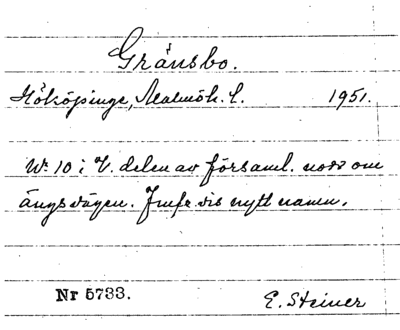 Gränsbo.
Hököpinge, Malmöh. l. 1951.
Nr 10 i V. delen av församl. norr om
ängsvägen. Jmfr.vis nytt namn.
Nr 5733.
E. Steiner